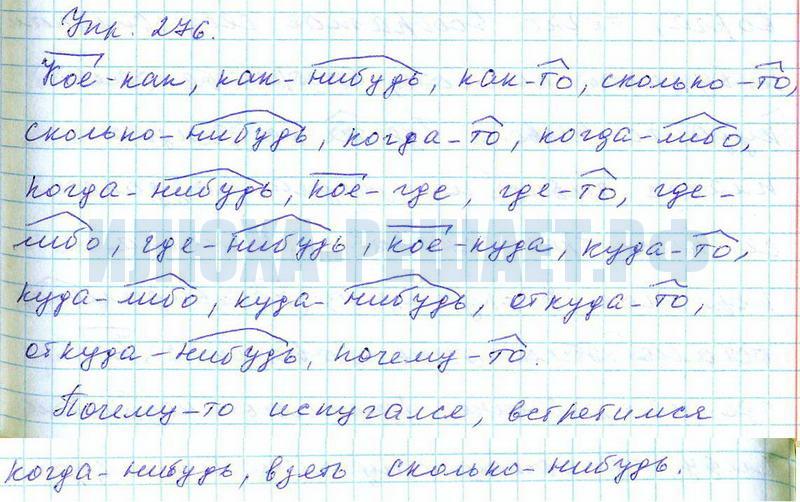 Упр. 276.
Кое-как, как-нибудь, как-то, сколько-то,
сколько-нибудь, когда-то, когда-либо,
когда-нибудь, кое-где, где-то, где-
либо, где-нибудь, кое-куда, куда-то,
ИЛЮХА РЕШАЕТ.РФ
куда-либо, куда-нибудь, откуда-то,
откуда-нибудь, почему-то.
Почему-то испугался, встретимся
когда-нибудь, взять сколько-нибудь.